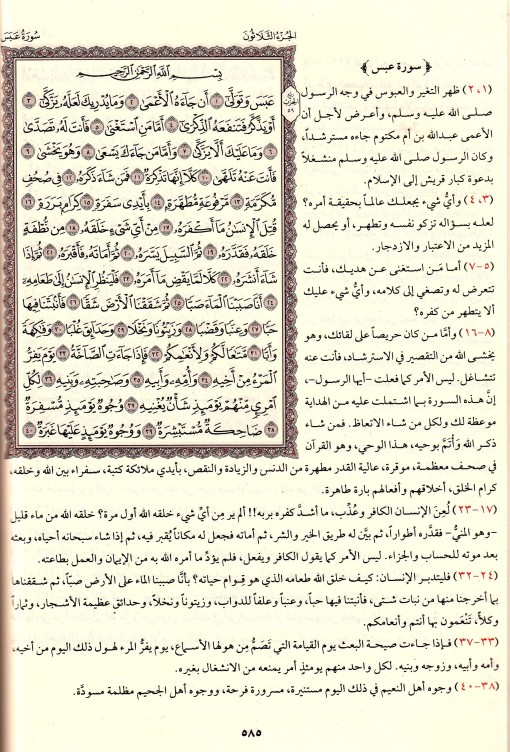 سُورَةُ عَبَسَ
الجُزْءُ الثَّلَاثُونَ
بِسْمِ اللَّهِ الرَّحْمَٰنِ الرَّحِيمِ
عَبَسَ وَتَوَلَّىٰ ١ أَن جَاءَهُ الْأَعْمَىٰ ٢ وَمَا يُدْرِيكَ لَعَلَّهُ يَزَّكَّىٰ ٣
أَوْ يَذَّكَّرُ فَتَنفَعَهُ الذِّكْرَىٰ ٤ أَمَّا مَنِ اسْتَغْنَىٰ ٥ فَأَنتَ لَهُ تَصَدَّىٰ
٦ وَمَا عَلَيْكَ أَلَّا يَزَّكَّىٰ ٧ وَأَمَّا مَن جَاءَكَ يَسْعَىٰ ٨ وَهُوَ يَخْشَىٰ ٩
فَأَنتَ عَنْهُ تَلَهَّىٰ ١٠ كَلَّا إِنَّهَا تَذْكِرَةٌ ١١ فَمَن شَاءَ ذَكَرَهُ ١٢ فِي صُحُفٍ
مُّكَرَّمَةٍ ١٣ مَّرْفُوعَةٍ مُّطَهَّرَةٍ ١٤ بِأَيْدِي سَفَرَةٍ ١٥ كِرَامٍ بَرَرَةٍ ١٦
قُتِلَ الْإِنسَانُ مَا أَكْفَرَهُ ١٧ مِنْ أَيِّ شَيْءٍ خَلَقَهُ ١٨ مِن نُّطْفَةٍ
خَلَقَهُ فَقَدَّرَهُ ١٩ ثُمَّ السَّبِيلَ يَسَّرَهُ ٢٠ ثُمَّ أَمَاتَهُ فَأَقْبَرَهُ ٢١ ثُمَّ إِذَا
شَاءَ أَنشَرَهُ ٢٢ كَلَّا لَمَّا يَقْضِ مَا أَمَرَهُ ٢٣ فَلْيَنظُرِ الْإِنسَانُ إِلَىٰ طَعَامِهِ
٢٤ أَنَّا صَبَبْنَا الْمَاءَ صَبًّا ٢٥ ثُمَّ شَقَقْنَا الْأَرْضَ شَقًّا ٢٦ فَأَنبَتْنَا فِيهَا
حَبًّا ٢٧ وَعِنَبًا وَقَضْبًا ٢٨ وَزَيْتُونًا وَنَخْلًا ٢٩ وَحَدَائِقَ غُلْبًا ٣٠ وَفَاكِهَةً
وَأَبًّا ٣١ مَّتَاعًا لَّكُمْ وَلِأَنْعَامِكُمْ ٣٢ فَإِذَا جَاءَتِ الصَّاخَّةُ ٣٣ يَوْمَ يَفِرُّ
الْمَرْءُ مِنْ أَخِيهِ ٣٤ وَأُمِّهِ وَأَبِيهِ ٣٥ وَصَاحِبَتِهِ وَبَنِيهِ ٣٦ لِكُلِّ
امْرِئٍ مِّنْهُمْ يَوْمَئِذٍ شَأْنٌ يُغْنِيهِ ٣٧ وُجُوهٌ يَوْمَئِذٍ مُّسْفِرَةٌ
٣٨ ضَاحِكَةٌ مُّسْتَبْشِرَةٌ ٣٩ وَوُجُوهٌ يَوْمَئِذٍ عَلَيْهَا غَبَرَةٌ ٤٠
﴿سورة عبس﴾
(١، ٢) ظهر التغير والعبوس في وجه الرسول
صلى الله عليه وسلم، وأعرض لأجل أن
الأعمى عبدالله بن أم مكتوم جاءه مسترشداً،
وكان الرسول صلى الله عليه وسلم منشغلاً
بدعوة كبار قريش إلى الإسلام.
(٣، ٤) وأيُّ شيء يجعلك عالماً بحقيقة أمره؟
لعله بسؤاله تزكو نفسه وتطهر، أو يحصل له
المزيد من الاعتبار والازدجار.
(٥-٧) أما مَن استغنى عن هديك، فأنت
تتعرض له وتصغي إلى كلامه، وأيُّ شيء عليك
ألا يتطهر من كفره؟
(٨-١٦) وأمَّا من كان حريصاً على لقائك، وهو
يخشى الله من التقصير في الاسترشاد، فأنت عنه
تتشاغل. ليس الأمر كما فعلت -أيها الرسول-،
إنَّ هذه السورة بما اشتملت عليه من الهداية
موعظة لك ولكل من شاء الاتعاظ. فمن شاء
ذكر الله وَأْتَمَّ بوحيه، هذا الوحي، وهو القرآن
في صحف معظمة، موقرة، عالية القدر مطهرة من الدنس والزيادة والنقص، بأيدي ملائكة كتبة، سفراء بين الله وخلقه،
كرام الخلق، أخلاقهم وأفعالهم بارة طاهرة.
(١٧-٢٣) لُعِنَ الإنسان الكافر وعُذِّب، ما أشدَّ كفره بربه!! ألم ير مِن أيِّ شيء خلقه الله أول مرة؟ خلقه الله من ماء قليل
-وهو المنيُّ- فقدَّره أطواراً، ثم بيَّن له طريق الخير والشر، ثم أماته فجعل له مكاناً يُقبر فيه، ثم إذا شاء سبحانه أحياه، وبعثه
بعد موته للحساب والجزاء. ليس الأمر كما يقول الكافر ويفعل، فلم يؤدِّ ما أمره الله به من الإيمان والعمل بطاعته.
(٢٤-٣٢) فليتدبر الإنسان: كيف خلق الله طعامه الذي هو قِوام حياته؟ بأنَّا صببنا الماء على الأرض صبّاً، ثم شققناها
بما أخرجنا منها من نبات شتى، فأنبتنا فيها حباً، وعنباً وعلفاً للدواب، وزيتوناً ونخلاً، وحدائق عظيمة الأشجار، وثماراً
وكلأً، تَنْعَمون بها أنتم وأنعامكم.
(٣٣-٣٧) فإذا جاءت صيحة البعث يوم القيامة التي تَصَمُّ مِن هولها الأسماع، يوم يفرُّ المرء لهول ذلك اليوم من أخيه،
وأمه وأبيه، وزوجه وبنيه. لكل واحد منهم يومئذٍ أمر يمنعه من الانشغال بغيره.
(٣٨-٤٠) وجوه أهل النعيم في ذلك اليوم مستنيرة، مسرورة فرحة، ووجوه أهل الجحيم مظلمة مسودَّة.
٥٨٥